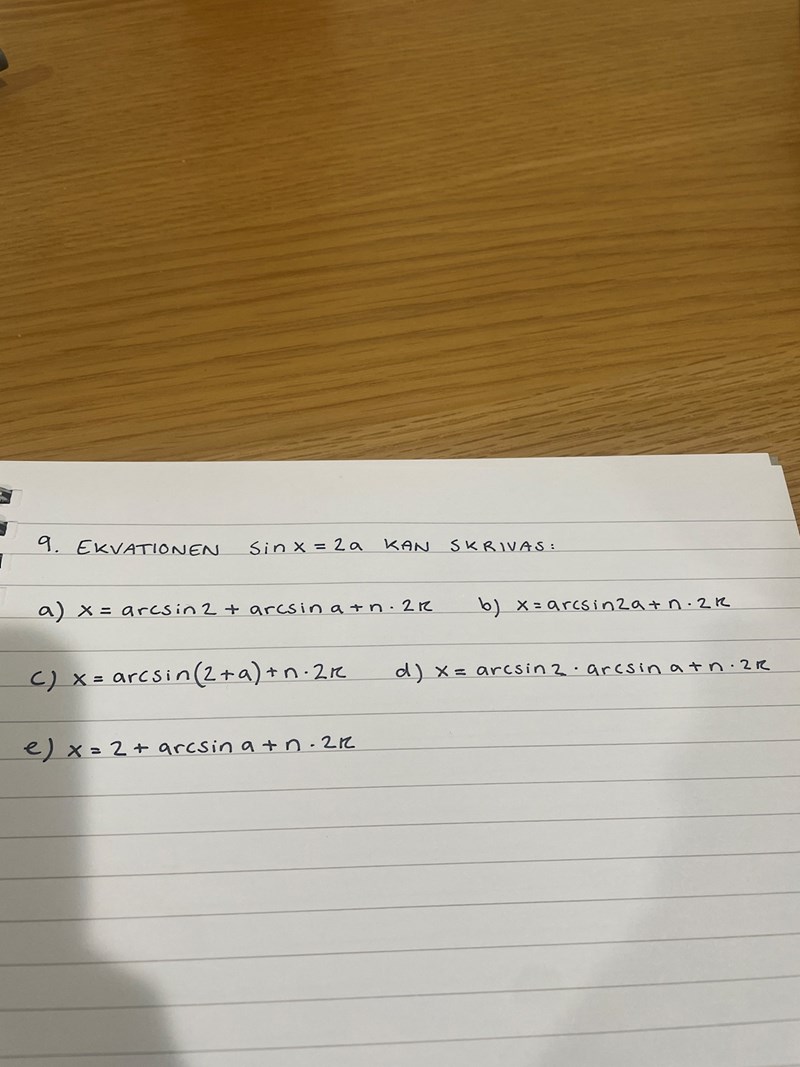 9. EKVATIONEN sin x = 2a KAN SKRIVAS:
a) x = arcsin 2 + arcsin a + n · 2π b) x = arcsin 2a + n · 2π
c) x = arcsin(2+a) + n · 2π d) x = arcsin 2 · arcsin a + n · 2π
e) x = 2 + arcsin a + n · 2π